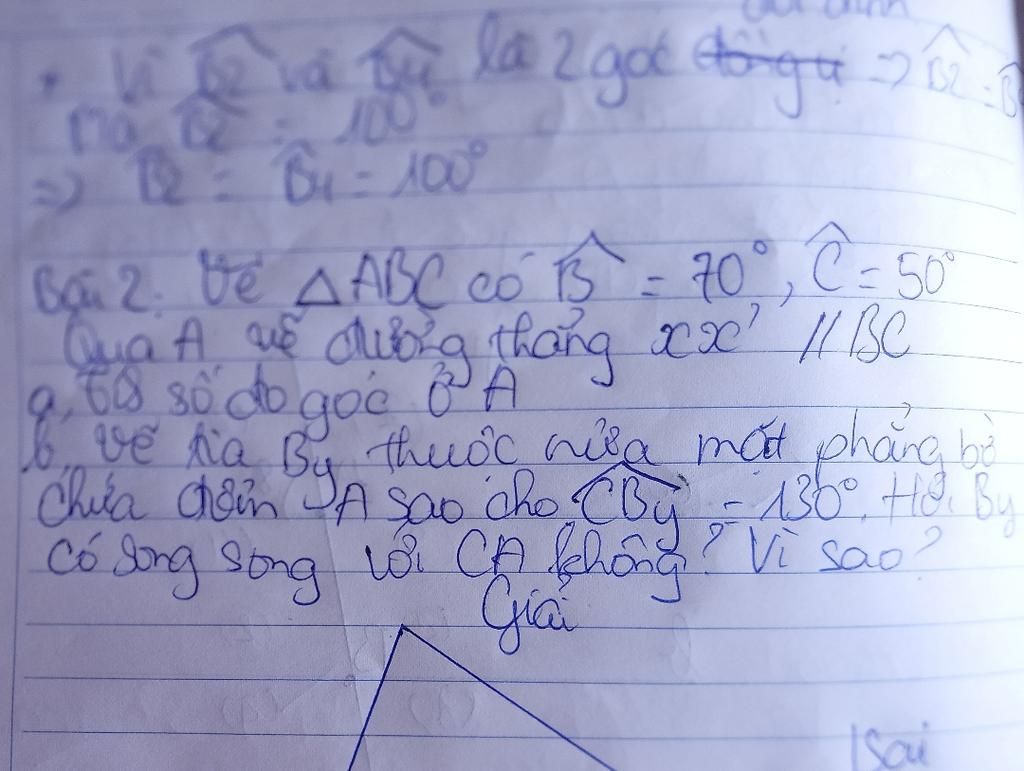 đối đỉnh
Vì B̂2 và B̂4 là 2 góc đồng vị => B̂2 = B̂
Mà B̂2 = 100°
=> B̂2 = B̂4 = 100°
Bài 2. Vẽ △ABC có B̂ = 70°, Ĉ = 50°
Qua A vẽ đường thẳng xx' // BC
a, số đo góc ở A
b, Vẽ tia By thuộc nửa mặt phẳng bờ
chứa điểm A sao cho CBy = 130°. Hỏi By
có song song với CA không? Vì sao?
Giải